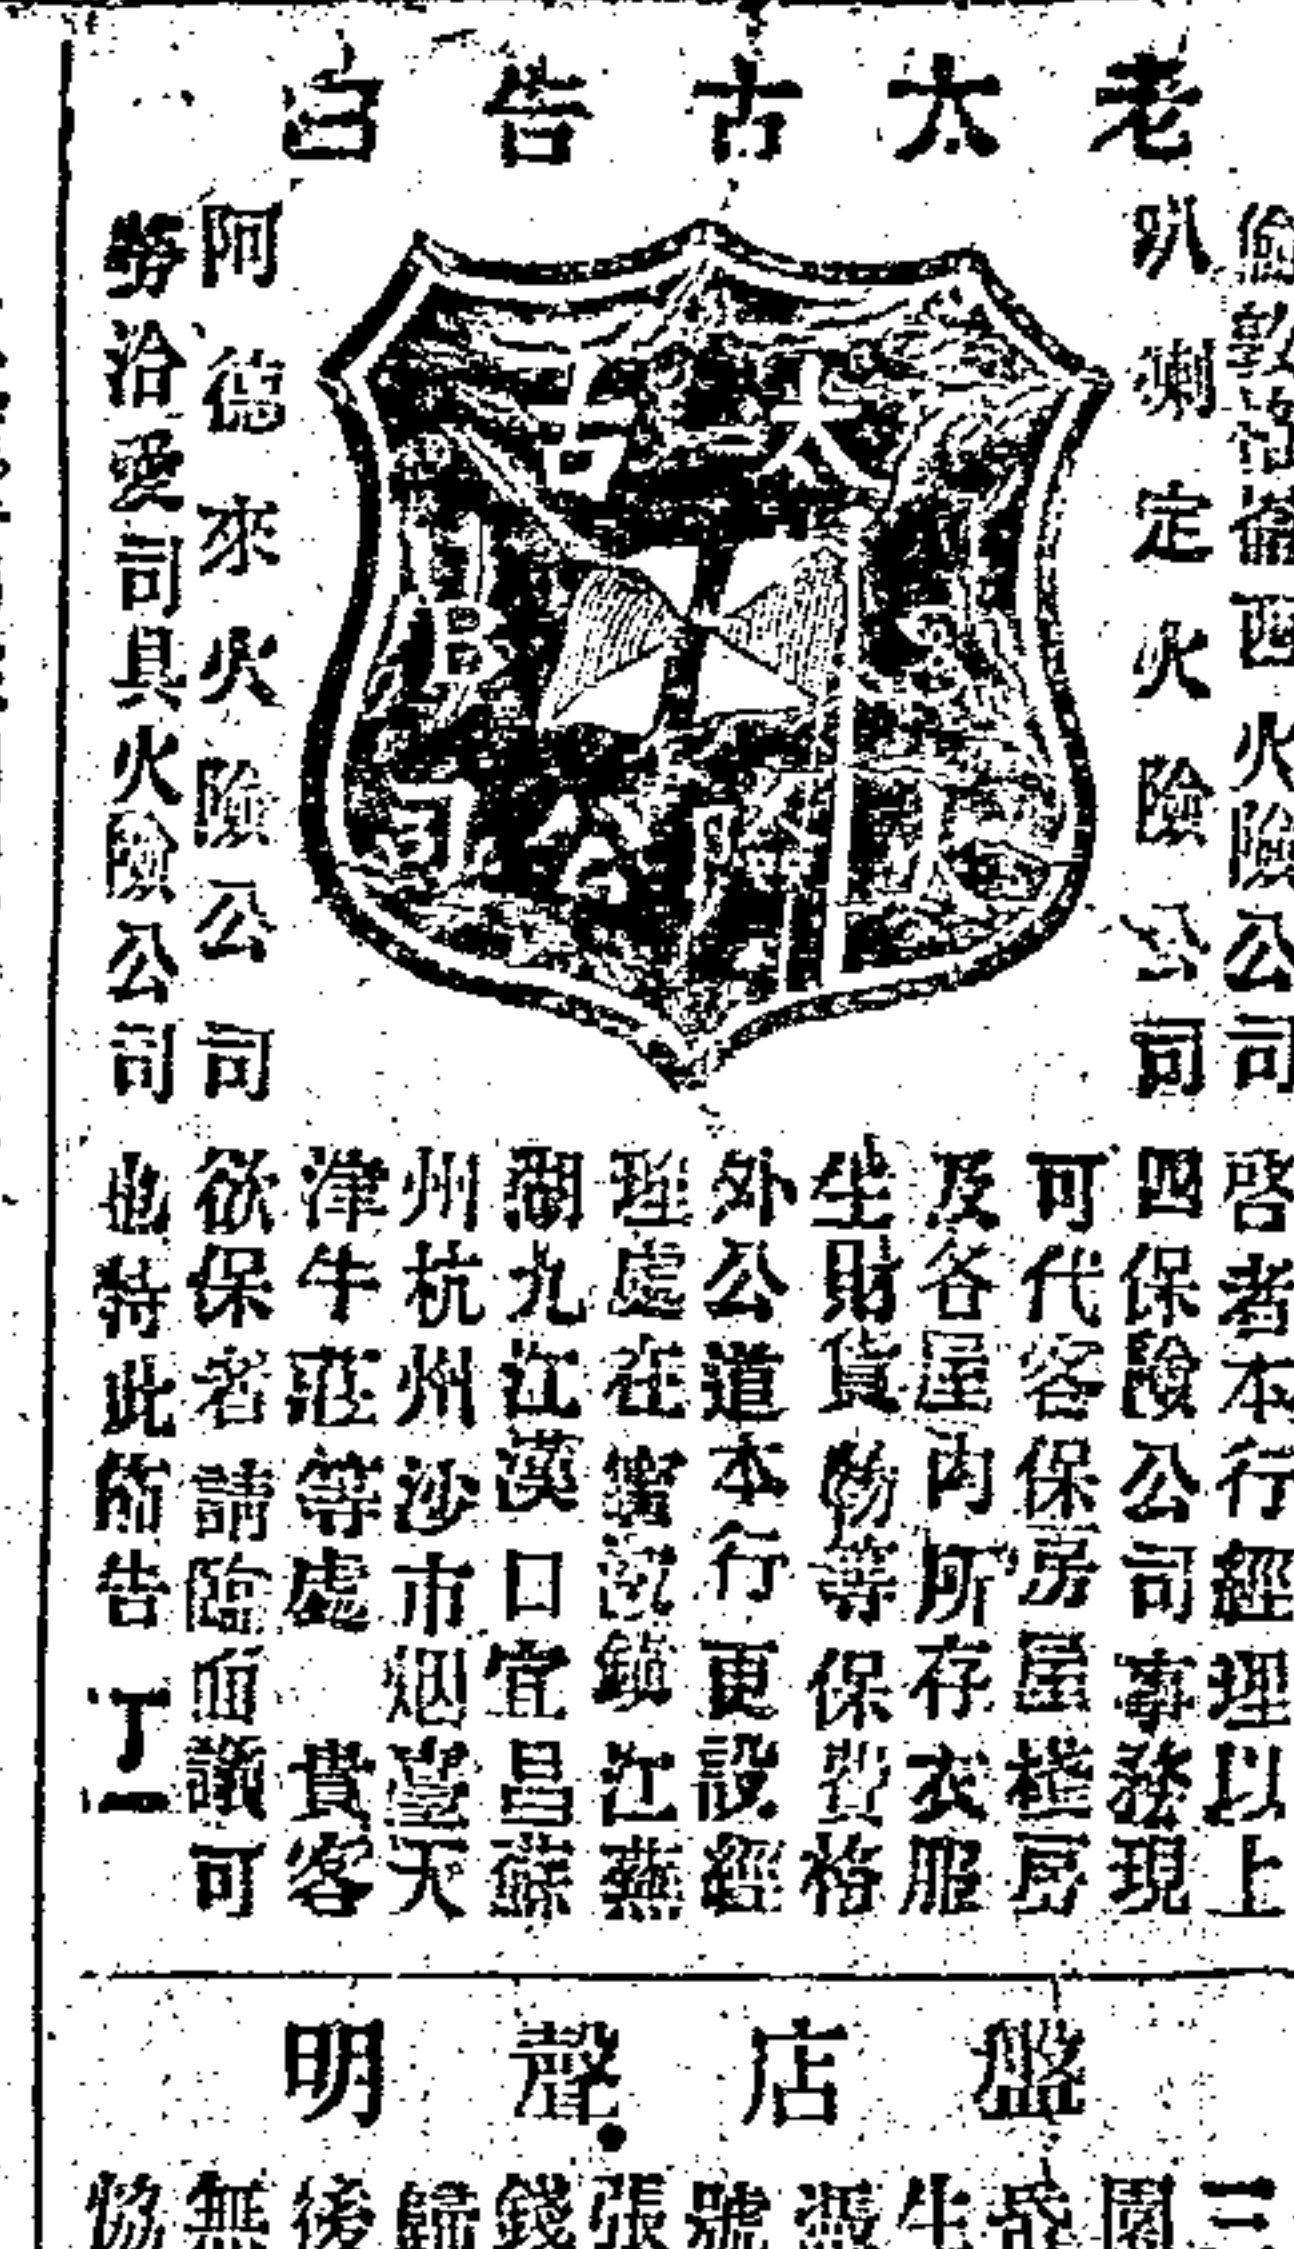 老太古告白
倫敦沽倫西火險公司
叭喇定火險公司
太古
B & S
火險公司
阿德來火險公司
勞洽愛司具火險公司
啓者本行經理以上
四保險公司事務現
可代客保房屋棧房
及各屋內所存衣服
生財貨物等保費格
外公道本行更設經
理處在寗波鎮江蕪
湖九江漢口宜昌蘇
州杭州沙市烟臺天
津牛莊等處 貴客
欲保者請臨面議可
也特此佈告 丁一
盤店聲明
三
園
生
憑
號
張
錢
歸
後
無